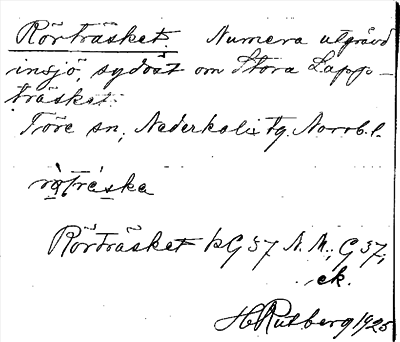 Rörträsket. Numera utgrävd
insjö, sydväst om Stora Lapp-
träsket.
Töre sn, Nederkalix tg. Norrb. l.
rö̀tréska
Rörträsket kG 37 N. M.; G 37,
ek.
H Rutberg 1925